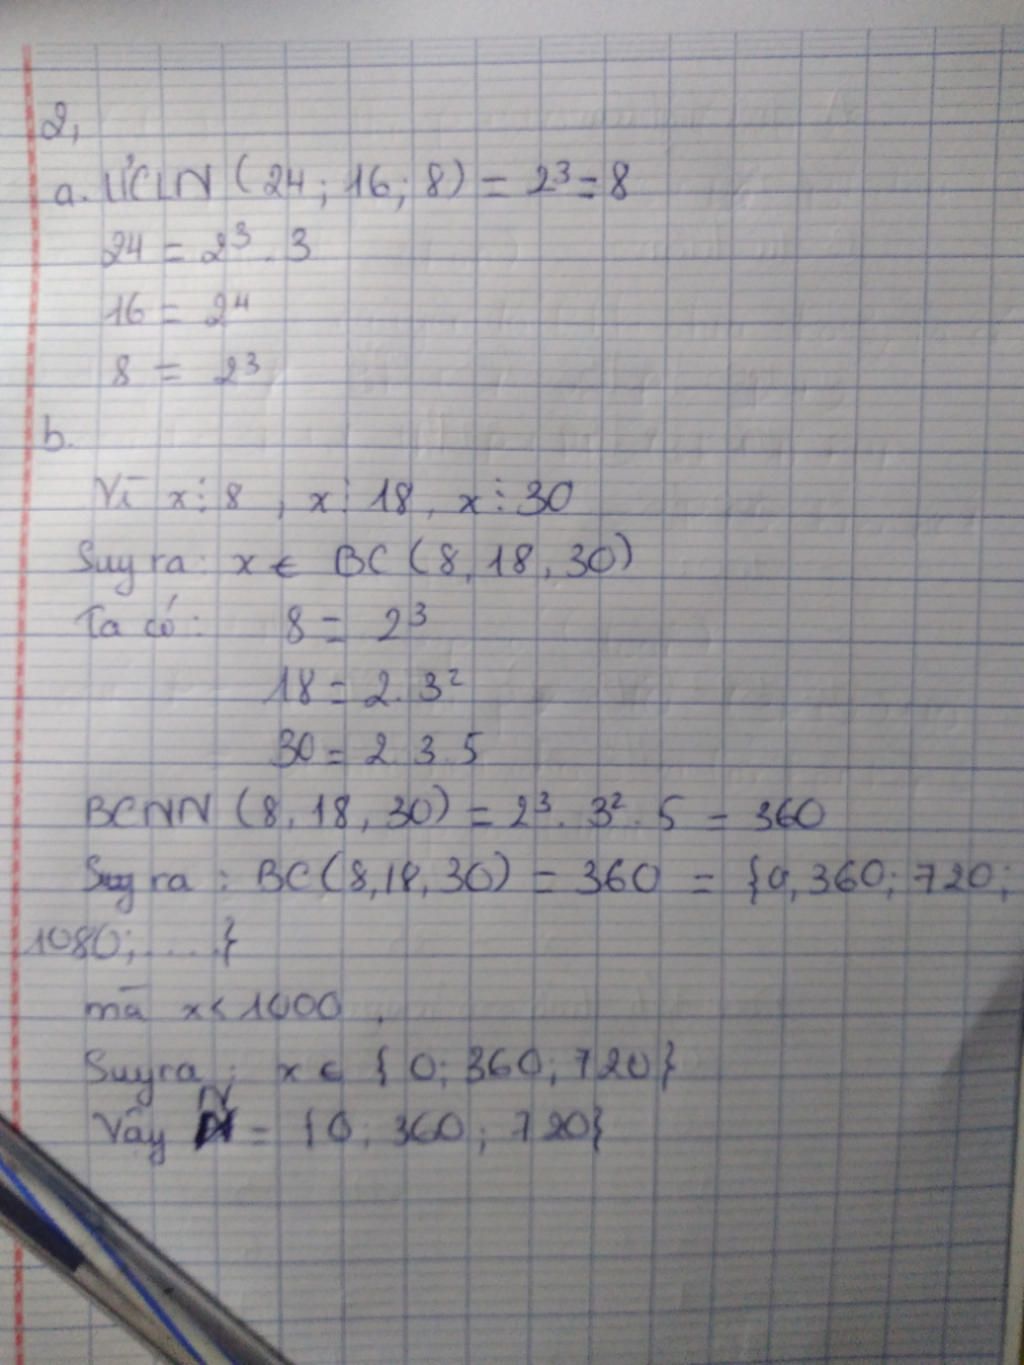 2,
a. ƯCLN (24; 16; 8) = 2³ = 8
24 = 2³ . 3
16 = 2⁴
8 = 2³
b.
Vì x ⋮ 8 , x ⋮ 18, x ⋮ 30
Suy ra: x ∈ BC (8, 18, 30)
Ta có: 8 = 2³
18 = 2. 3²
30 = 2. 3. 5
BCNN (8, 18, 30) = 2³. 3². 5 = 360
Suy ra : BC(8,18,30) = 360 = {0, 360; 720;
1080; .....}
mà x < 1000 .
Suy ra : x ∈ { 0; 360; 720}
Vậy N = {0; 360; 720}